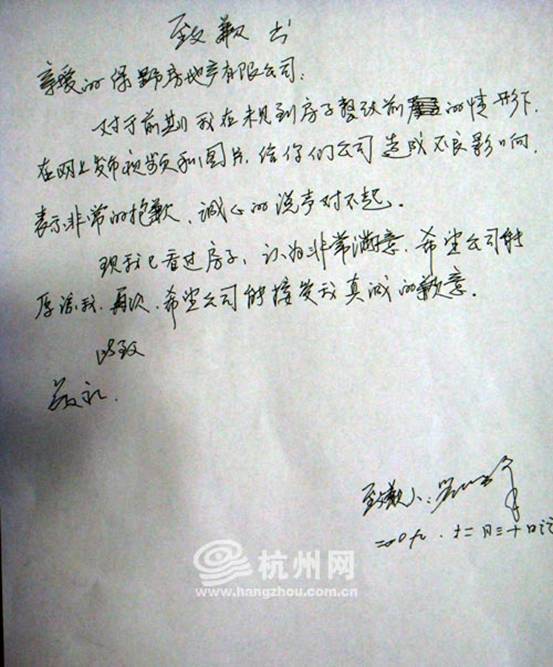 致歉书
亲爱的保 房地产有限公司:
对于前期我在未见到房子整改前 的情形下.
在网上发布视频和图片,给你们公司造成不良影响.
表示非常的抱歉,诚心的说声对不起.
现我已看过房子,认为非常满意,希望公司能
原谅我.再次希望公司能接受我真诚的歉意.
此致
敬礼.
致歉人:
二00九.十二月三十日
杭州网
www.hangzhou.com.cn